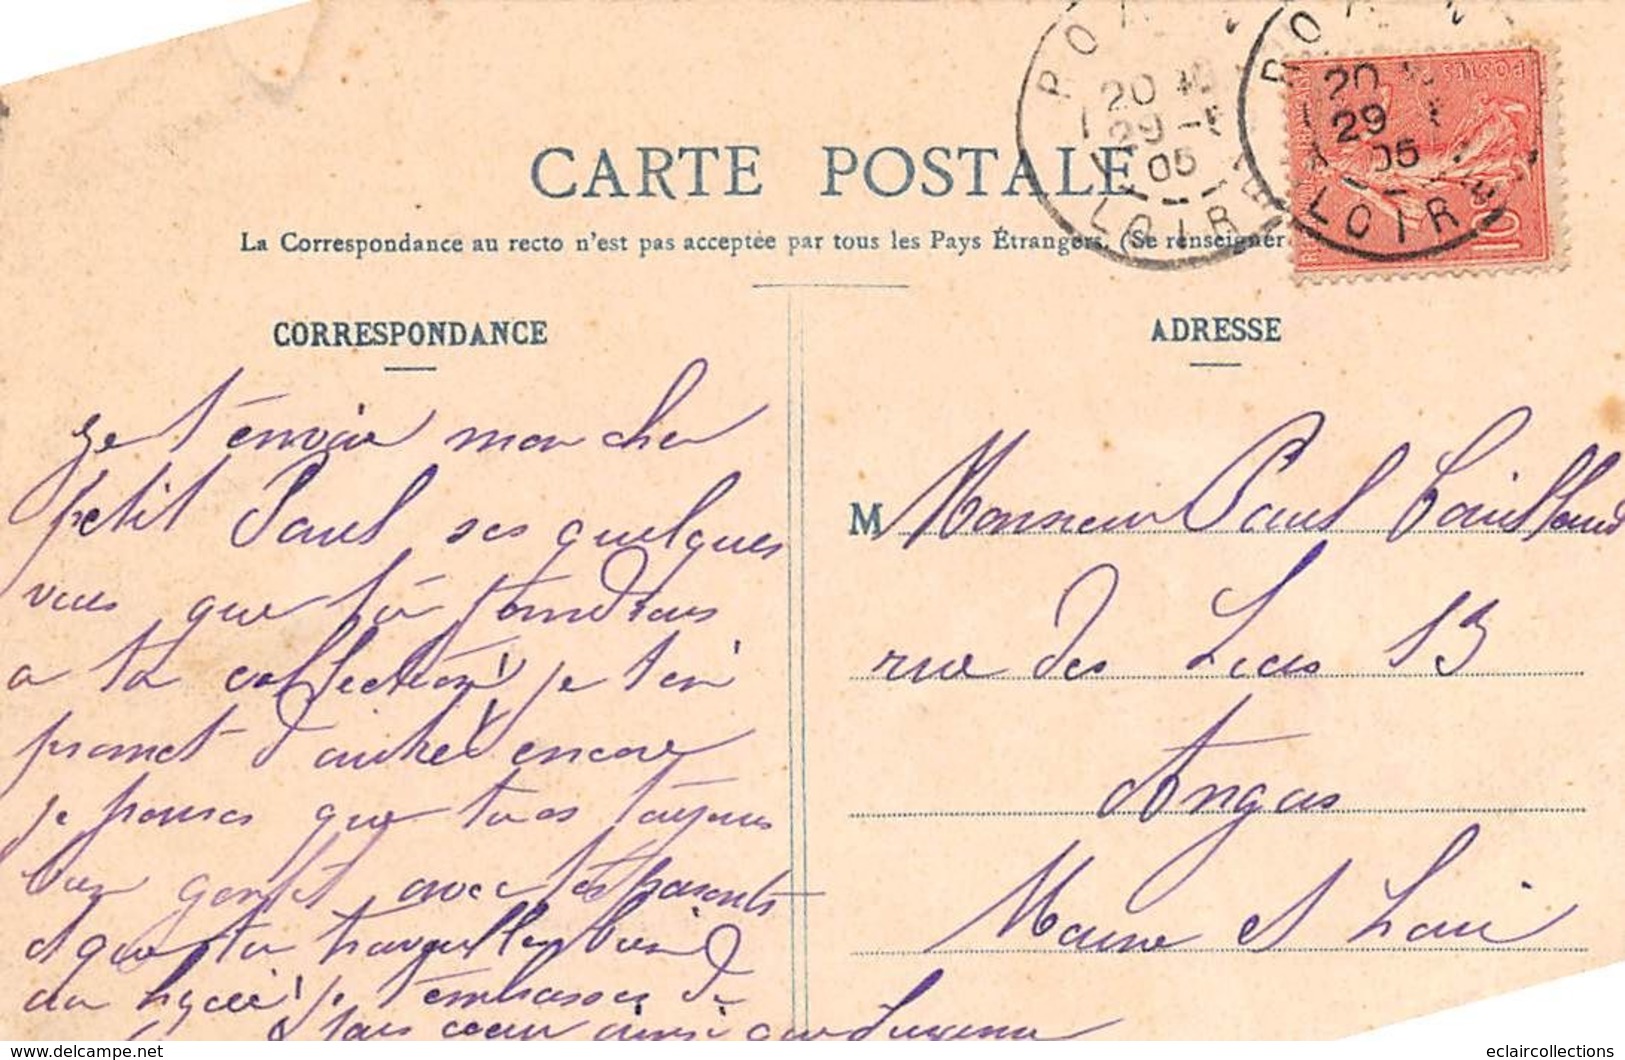 CARTE POSTALE
La Correspondance au recto n'est pas acceptée par tous les Pays Étrangers. (Se renseigner
CORRESPONDANCE
ADRESSE
20
29
05
LOIRE
20
29
05
LOIR
POSTES
10
Je t'envoie mon cher
petit Paul ses quelques
vues que tu joindras
a ta collection je t'en
promet d'autre encore
je penses que tu es toujours
bien gentil avec tes parents
et que tu travailles bien
au lycée je t'embrasse de
cœur ainsi que
M Monsieur Paul
rue des Lices 13
Angers
Maine et Loire
eclaircollections